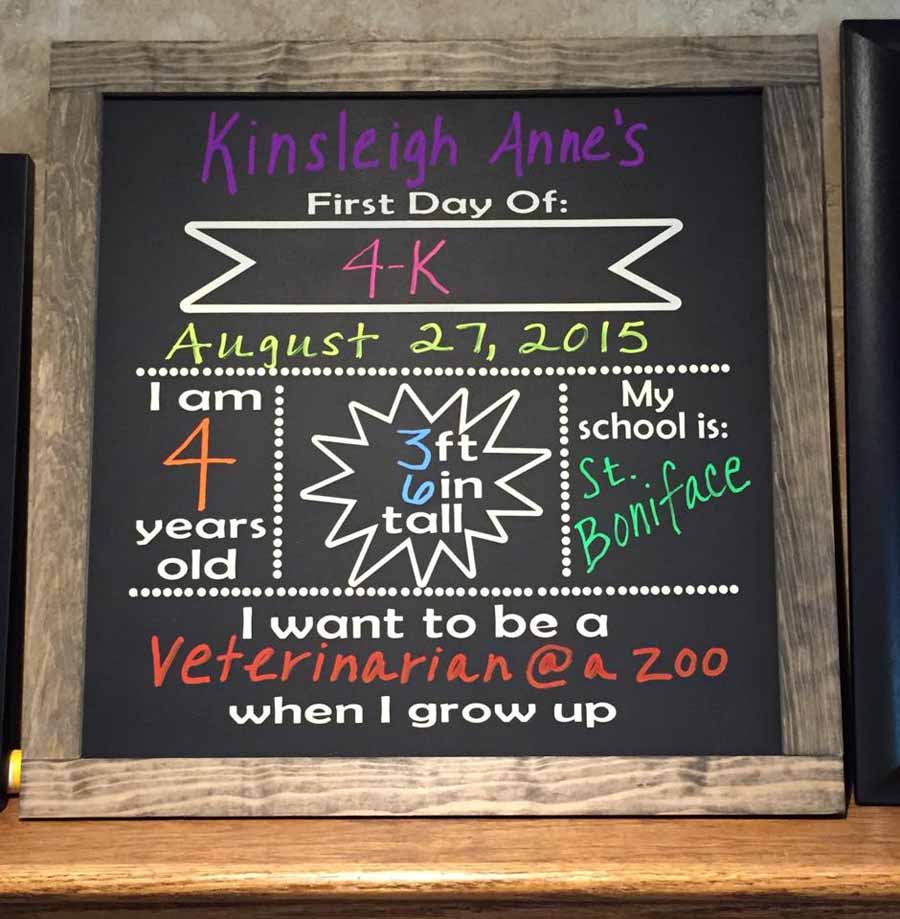 Kinsleigh Anne's
First Day Of:
4-K
August 27, 2015
I am
4
years
old
3ft
6in
tall
My
school is:
St.
Boniface
I want to be a
Veterinarian @ a Zoo
when I grow up